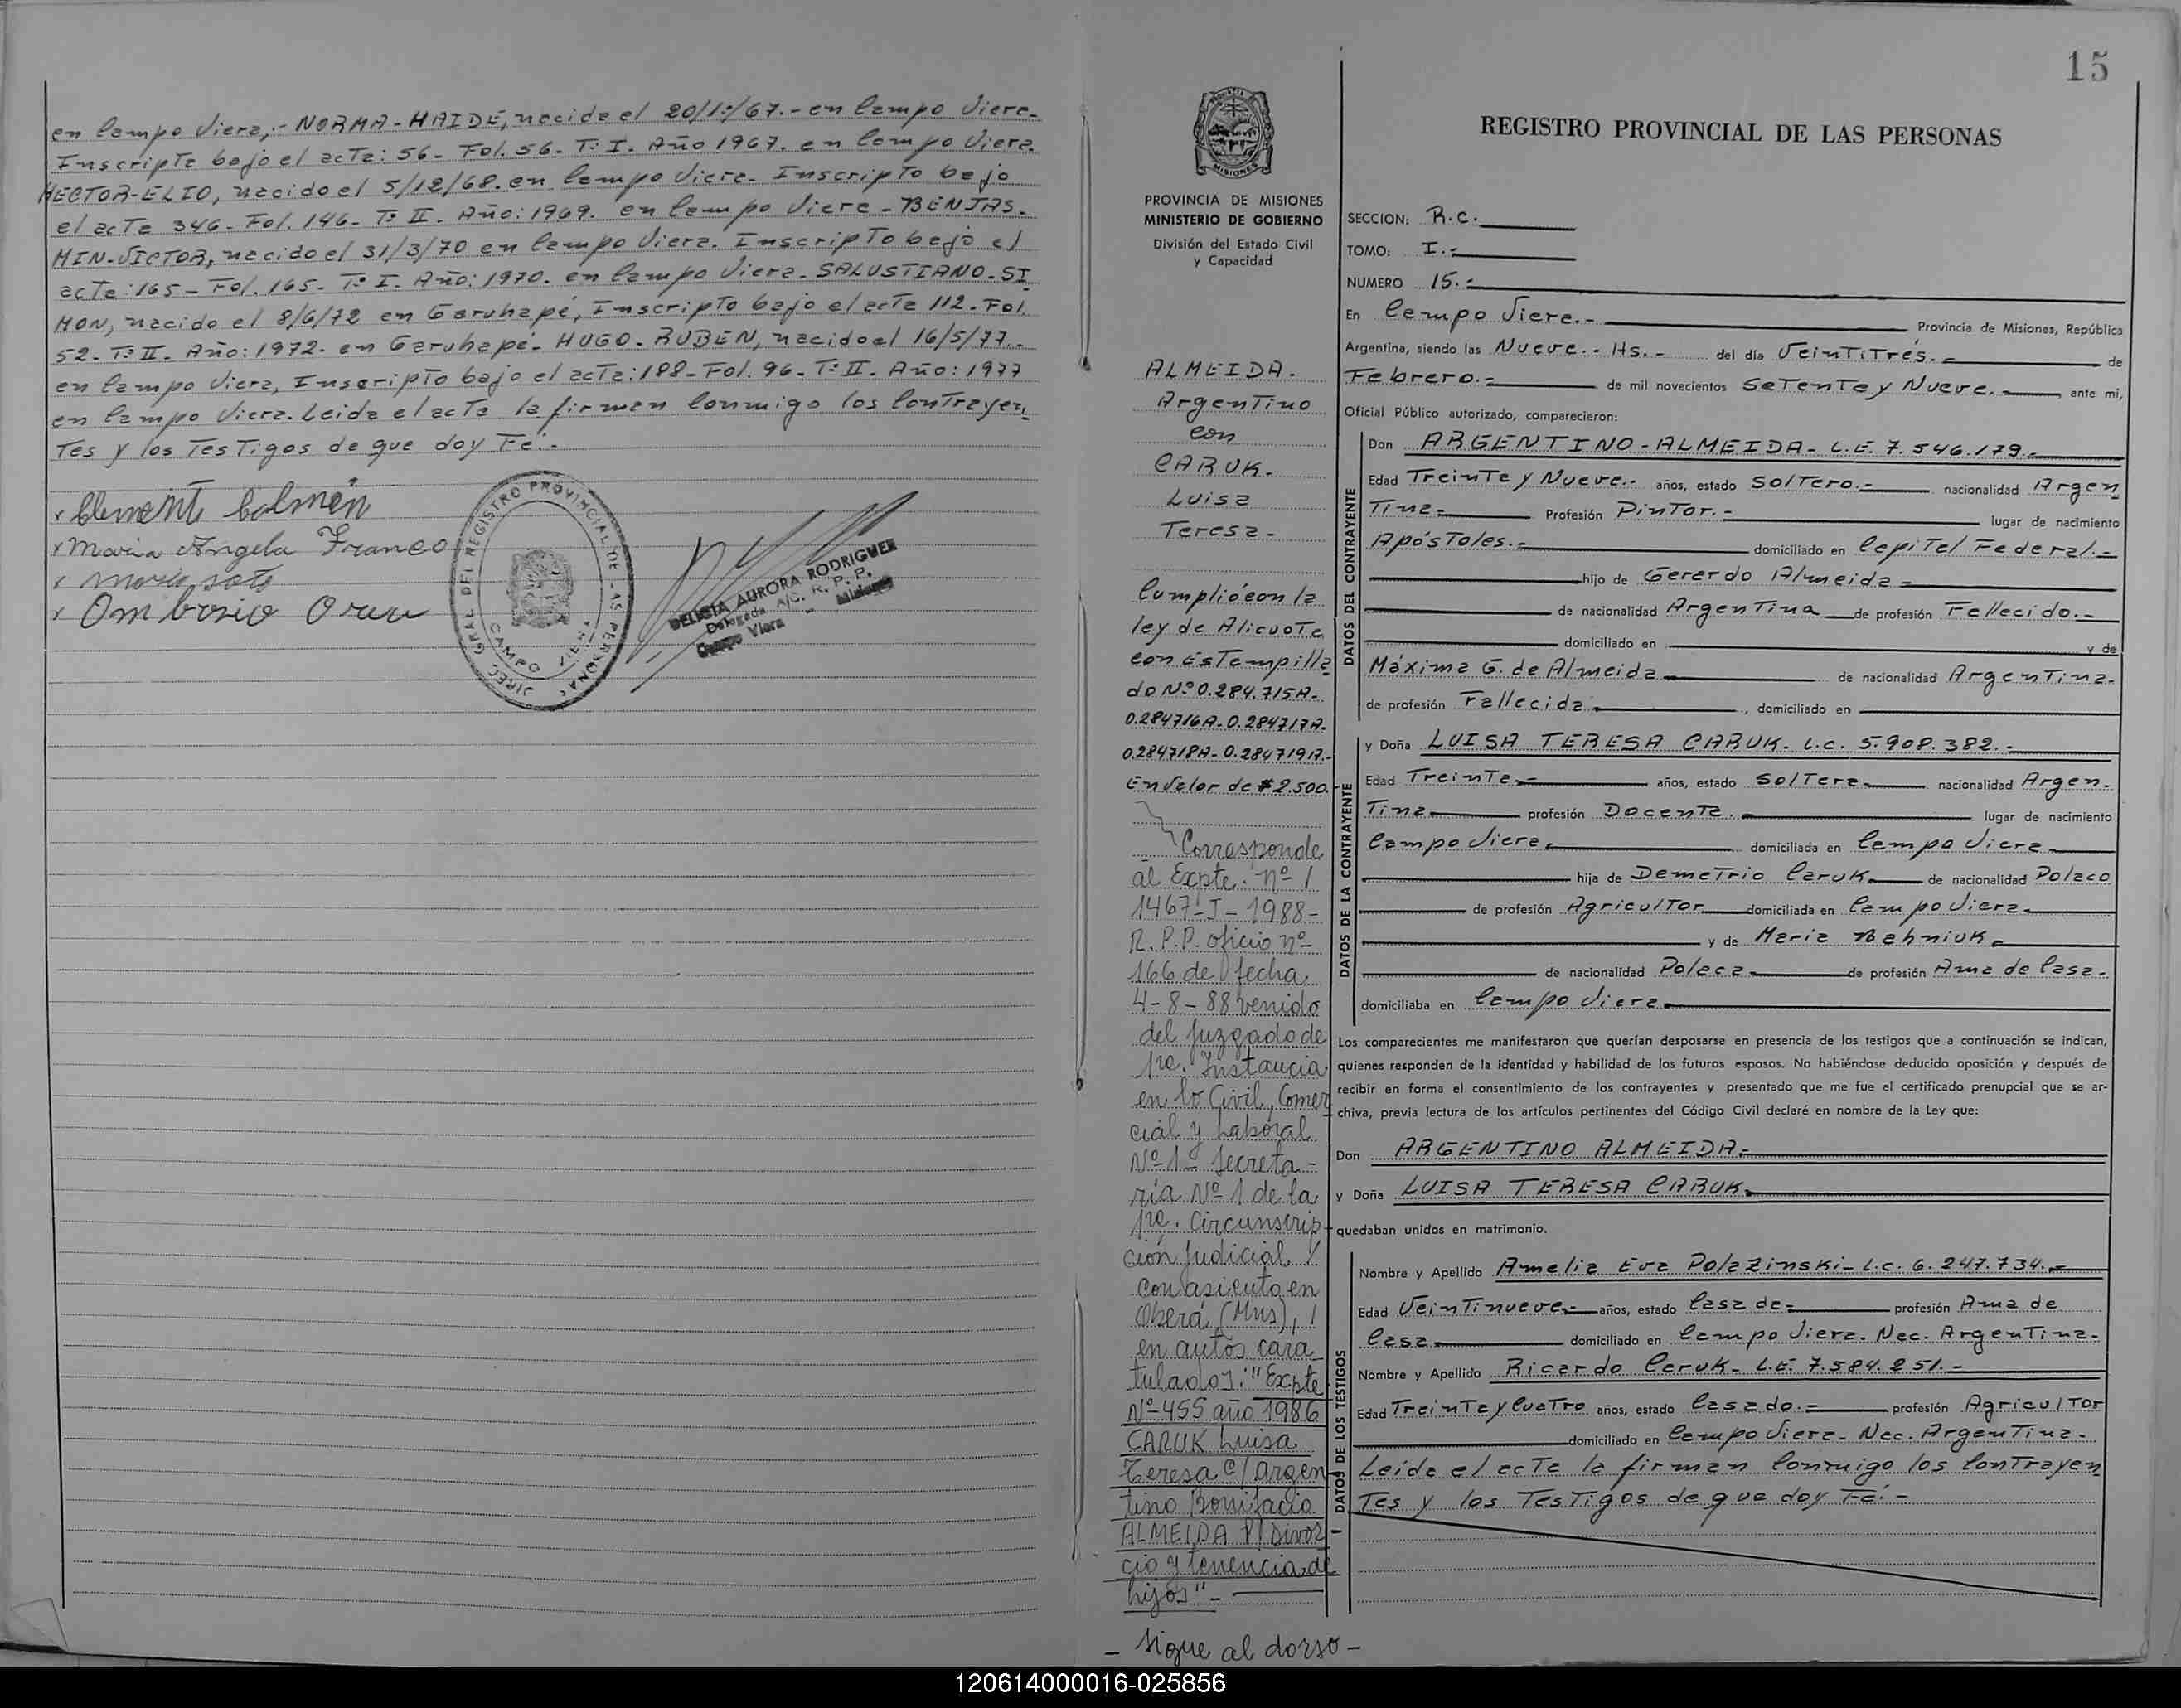 en Campo Viera,.- NORMA-HAIDE, nacida el 20/1º/67.- en Campo Viera-
Inscripta bajo el acta: 56- Fol. 56- Tº I. Año 1967. en Campo Viera.
HECTOR-ELIO, nacido el 5/12/68. en Campo Viera- Inscripto bajo
el acta 346- Fol. 146- Tº II- Año: 1969. en Campo Viera - BENJAS-
MIN-VICTOR, nacido el 31/3/70 en Campo Viera. Inscripto bajo el
acta: 165 - Fol. 165- Tº I- Año: 1970. en Campo Viera- SALUSTIANO-SI
MON, nacido el 8/6/72 en Garuhapé, Inscripto bajo el acta 112- Fol.
52- Tº II- Año: 1972. en Garuhapé- HUGO-RUBEN, nacido el 16/5/77.-
en Campo Viera, Inscripto bajo el acta: 188- Fol. 96- Tº II- Año: 1977
en Campo Viera. Leida el acta la firman Conmigo los Contrayen
Tes y los Testigos de que doy Fe:-
x Clemente
x Maria Angela Franco
x Maria soto
x Ombosio
DIREC. GRAL DEL REGISTRO PROVINCIAL DE LAS PERSONAS
CAMPO VIERA
DELICIA AURORA RODRIGUEZ
Delegada A/C. R. P. P.
Campo Viera - Misiones
15
MISIONES
PROVINCIA DE MISIONES
MINISTERIO DE GOBIERNO
División del Estado Civil
y Capacidad
ALMEIDA.
Argentino
con
CARUK.
Luisa
Teresa-
Cumplió con la
ley de Alicuota
con Estampilla
do Nº 0.284.715A-
0.284716A-0.284717A-
0.284718A-0.284719A-
En Valor de $ 2.500.
Corresponde
al Expte. nº /
1467-I-1988-
R.P.P. oficio nº
166 de fecha
4-8-88 venido
del Juzgado de
1ra. Instancia
en lo Civil, Comer
cial y Laboral
Nº 1- Secreta-
ría Nº 1 de la
1ra. Circunscrip-
ción Judicial /
con asiento en
Oberá (Mns), /
en autos cara
tulados: "Expte
Nº 455 año 1986
CARUK Luisa
Teresa c/ Argen
tino Bonifacio
ALMEIDA P/ Divor-
cio y tenencia de
hijos"-
- Sigue al dorso -
REGISTRO PROVINCIAL DE LAS PERSONAS
SECCION: R.C.
TOMO: I.-
NUMERO 15.-
En Campo Viera.- Provincia de Misiones, República
Argentina, siendo las Nueve.- Hs.- del día Veintitrés.- de
Febrero.- de mil novecientos Setenta y Nueve.- ante mi,
Oficial Público autorizado, comparecieron:
DATOS DEL CONTRAYENTE
Don ARGENTINO-ALMEIDA- L.E. 7.546.179.-
Edad Treinta y Nueve.- años, estado Soltero.- nacionalidad Argen
Tina- Profesión Pintor.- lugar de nacimiento
Apóstoles.- domiciliado en Capital Federal.-
hijo de Gerardo Almeida-
de nacionalidad Argentina de profesión Fallecido.-
domiciliado en y de
Máxima G. de Almeida de nacionalidad Argentina-
de profesión Fallecida , domiciliado en
DATOS DE LA CONTRAYENTE
y Doña LUISA TERESA CARUK- L.C. 5.908.382.-
Edad Treinta.- años, estado Soltera nacionalidad Argen-
Tina profesión Docente. lugar de nacimiento
Campo Viera domiciliada en Campo Viera
hija de Demetrio Caruk de nacionalidad Polaco
de profesión Agricultor domiciliada en Campo Viera-
y de Maria Bahniuk
de nacionalidad Polaca de profesión Ama de Casa-
domiciliaba en Campo Viera
Los comparecientes me manifestaron que querían desposarse en presencia de los testigos que a continuación se indican,
quienes responden de la identidad y habilidad de los futuros esposos. No habiéndose deducido oposición y después de
recibir en forma el consentimiento de los contrayentes y presentado que me fue el certificado prenupcial que se ar-
chiva, previa lectura de los artículos pertinentes del Código Civil declaré en nombre de la Ley que:
Don ARGENTINO ALMEIDA-
y Doña LUISA TERESA CARUK
quedaban unidos en matrimonio.
DATOS DE LOS TESTIGOS
Nombre y Apellido Amelia Eva Polazinski- L.C. 6.247.734.-
Edad Veintinueve- años, estado Casada- profesión Ama de
Casa domiciliado en Campo Viera. Nac. Argentina-
Nombre y Apellido Ricardo Caruk- L.E. 7.584.251.-
Edad Treinta y Cuatro años, estado Casado.- profesión Agricultor
domiciliado en Campo Viera- Nac. Argentina-
Leida el acta la firman Conmigo los Contrayen
Tes y los Testigos de que doy Fe:-
120614000016-025856